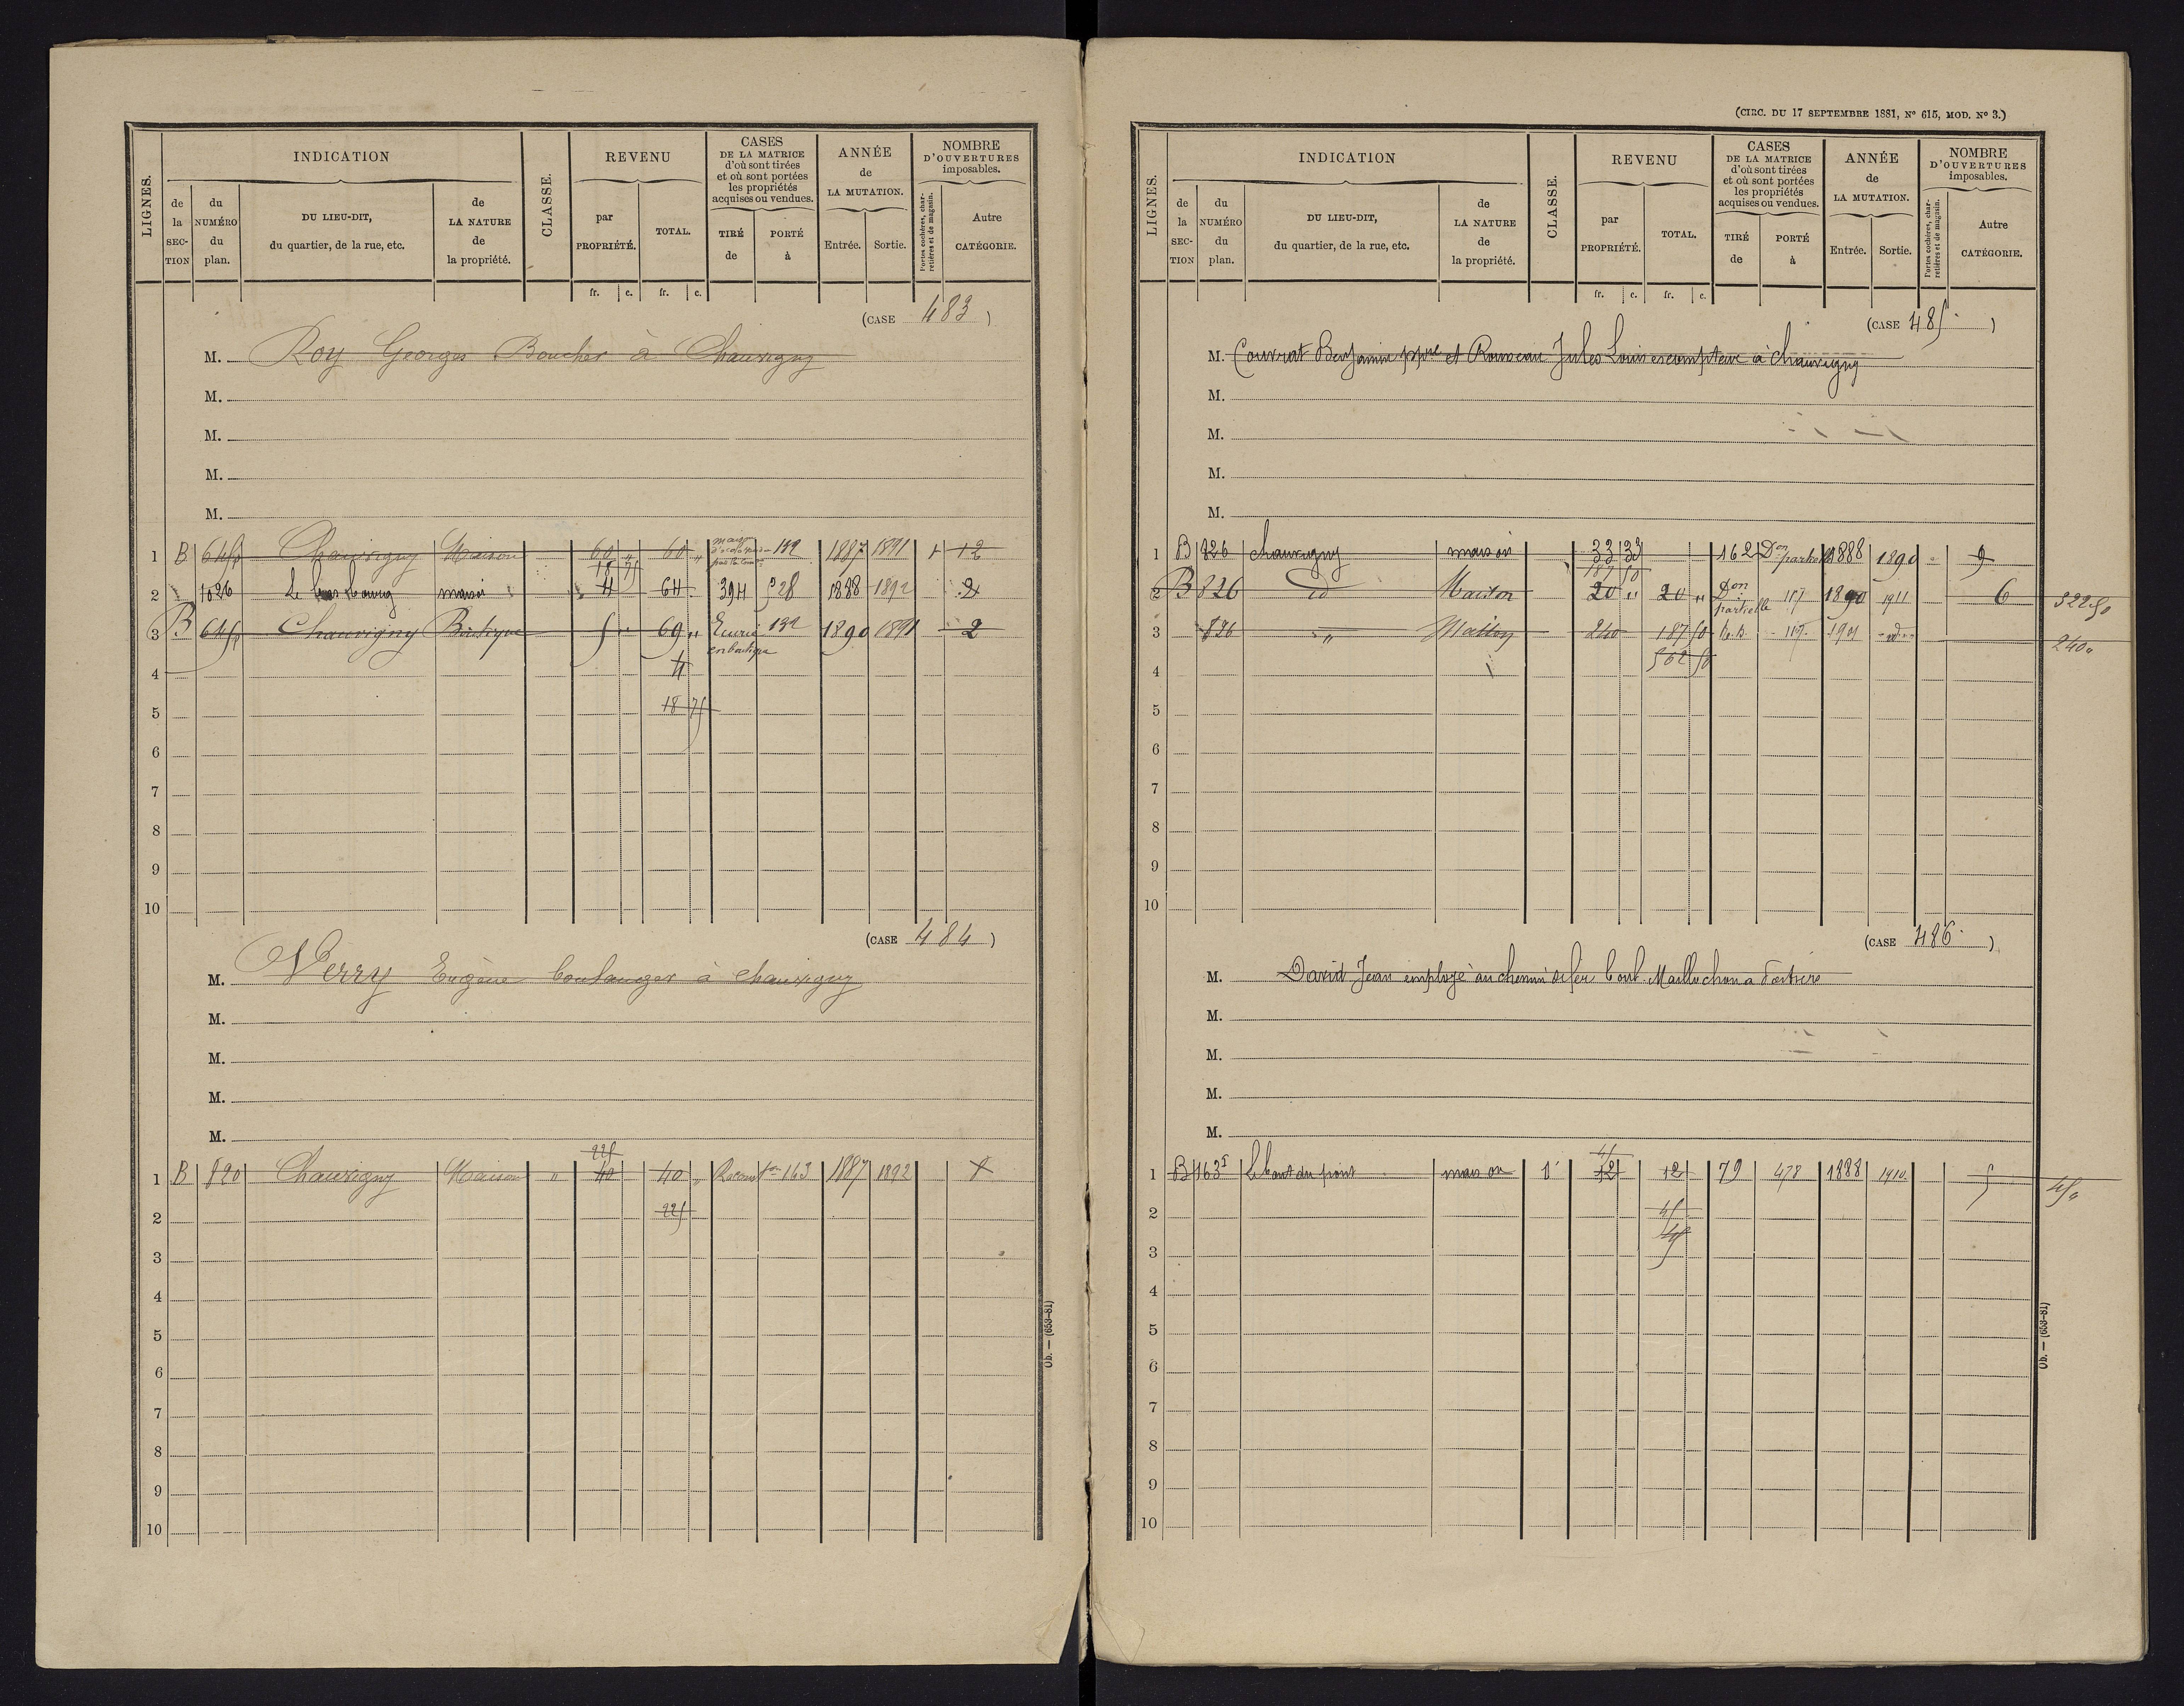 LIGNES.
INDICATION
de la SECTION
du NUMÉRO du plan.
DU LIEU-DIT, du quartier, de la rue, etc.
de LA NATURE de la propriété.
CLASSE.
REVENU
par PROPRIÉTÉ.
TOTAL.
CASES DE LA MATRICE d'où sont tirées et où sont portées les propriétés acquises ou vendues.
TIRÉ de
PORTÉ à
ANNÉE de LA MUTATION.
Entrée. Sortie.
NOMBRE D'OUVERTURES imposables.
Portes cochères, charretières et de magasin.
Autre CATÉGORIE.
fr. c. fr. c.
(CASE 483)
M. Roy Georges Boucher à Chauvigny
M.
M.
M.
M.
1 B Chauvigny Maison 60 " 60 " 139 1887 1891 1 12
18 75
2 1026 Le bas bourg maison 4 64 394 528 1888 1892 2
3 B Chauvigny Boutique 5 " 69 " Ecurie en boutique 139 1890 1891 2
4 4
5 18 75
6
7
8
9
10
(CASE 484)
M. Verry Eugène boulanger à Chauvigny
M.
M.
M.
M.
225
1 B 820 Chauvigny Maison " 40 40 " 163 1887 1892
2 225
3
4
5
6
7
8
9
10
Ob. — (653-81)
(CIRC. DU 17 SEPTEMBRE 1881, N° 615, MOD. N° 3.)
LIGNES.
INDICATION
de la SECTION
du NUMÉRO du plan.
DU LIEU-DIT, du quartier, de la rue, etc.
de LA NATURE de la propriété.
CLASSE.
REVENU
par PROPRIÉTÉ.
TOTAL.
CASES DE LA MATRICE d'où sont tirées et où sont portées les propriétés acquises ou vendues.
TIRÉ de
PORTÉ à
ANNÉE de LA MUTATION.
Entrée. Sortie.
NOMBRE D'OUVERTURES imposables.
Portes cochères, charretières et de magasin.
Autre CATÉGORIE.
fr. c. fr. c.
(CASE 485)
M. Couvrat Benjamin ppre et Rousseau Jules Louis escompteur à Chauvigny
M.
M.
M.
M.
1 B 826 Chauvigny maison 33 33 162 Don partielle 1888 1890 9
187 50
2 B 826 id Maison 20 " 20 " Don partielle 117 1890 1911 6 322 50
3 826 " Maison 240 187 50 117 1901 d° 240 "
4 562 50
5
6
7
8
9
10
(CASE 486)
M. David Jean employé au chemin de fer Maillochon a
M.
M.
M.
M.
45
1 B 163 Le bout du pont maison 12 12 79 478 1888 1910 5 45 "
2 45
3 45
4
5
6
7
8
9
10
Ob. — (653-81)